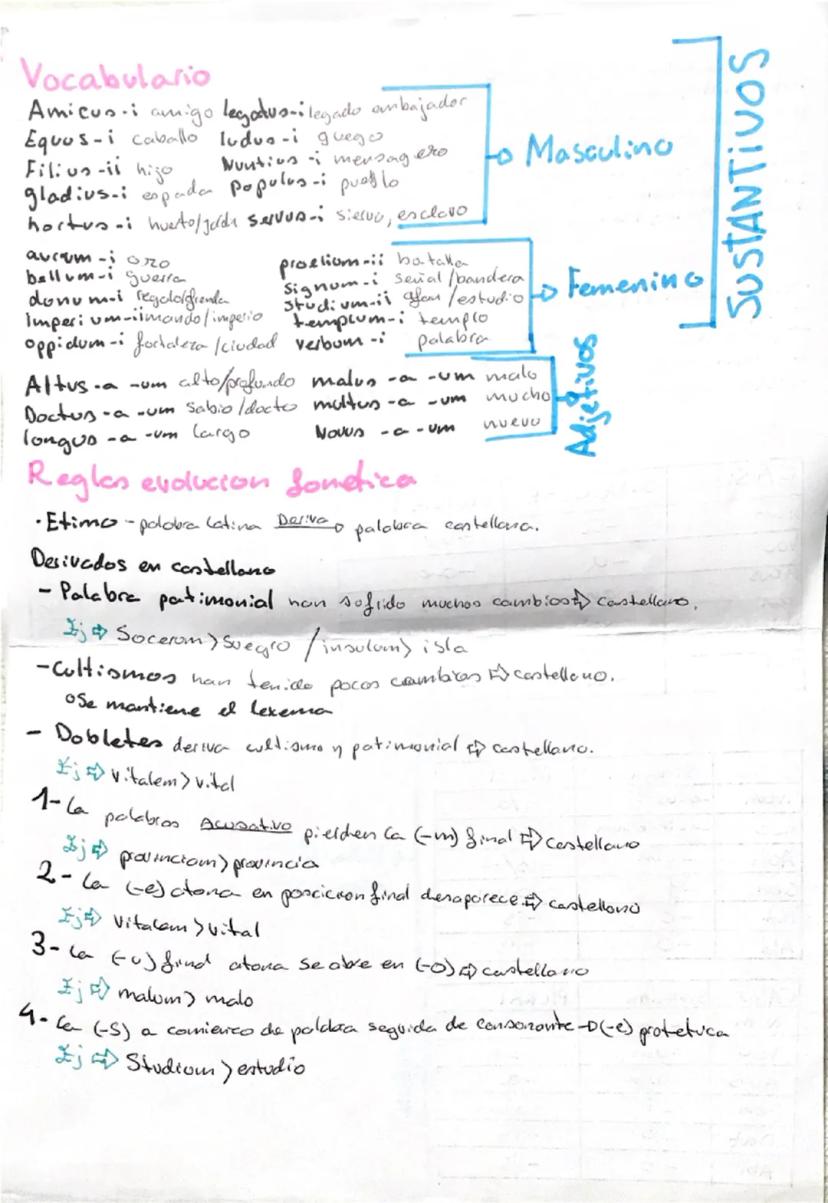 SUSTANTIVOS
Vocabulario
Amicus-i amigo legatus-i legado embajador
Equos-i caballo ludus-i guego
Filius-ii hijo Nuntius-i mensagero
gladius-i espada populus-i pueblo
hortus-i huerto/jardin servus-i siervo, esclavo
Masculino
aurum-i oro proelium-ii batalla
bellum-i guerra signum-i señal/bandera
donum-i regalo/ofrenda studium-ii afan/estudio
Imperium-ii mando/imperio templum-i templo
oppidum-i fortaleza/ciudad verbum-i palabra
Femenino
Altus-a-um alto/profundo malus-a-um malo
Doctus-a-um sabio/docto multus-a-um mucho
longus-a-um largo Novus-a-um nuevo
Adjetivos
Reglas evolucion fonetica
·Etimo - palabra latina Deriva → palabra castellana.
Derivados en castellano
- Palabra patimonial han sofrido muchos cambios ⇒ castellano.
Ej ⇒ Socerum > Suegro / insulam > isla
-Cultismos han tenido pocos cambios ⇒ castellano.
Se mantiene el lexema
- Dobletes deriva cultismo y patimonial ⇒ castellano.
Ej ⇒ vitalem > vital
1- La palabras Acusativo pierden la (-m) final ⇒ castellano
Ej ⇒ provinciam > provincia
2- La (-e) atona en poscicion final desaparece ⇒ castellano
Ej ⇒ Vitalem > vital
3- La (-u) final atona se abre en (-o) ⇒ castellano
Ej ⇒ malum > malo
4- La (-S) a comienco de palabra seguida de consonante → (-e) protetuca
Ej ⇒ Studium > estudio